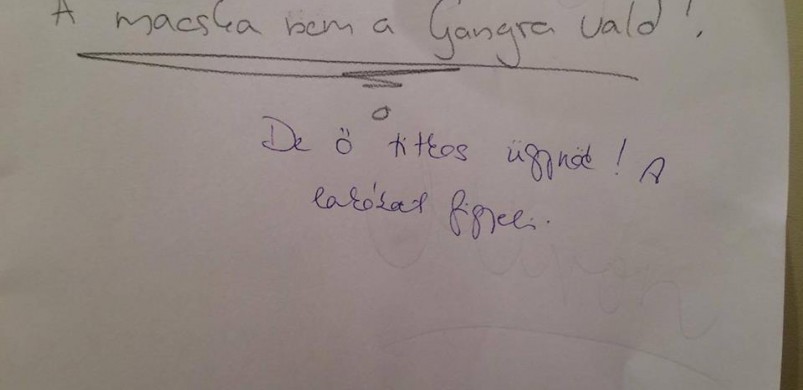 A macska nem a Gangra való!
De ő titkos ügynök! A
lakókat figyeli.